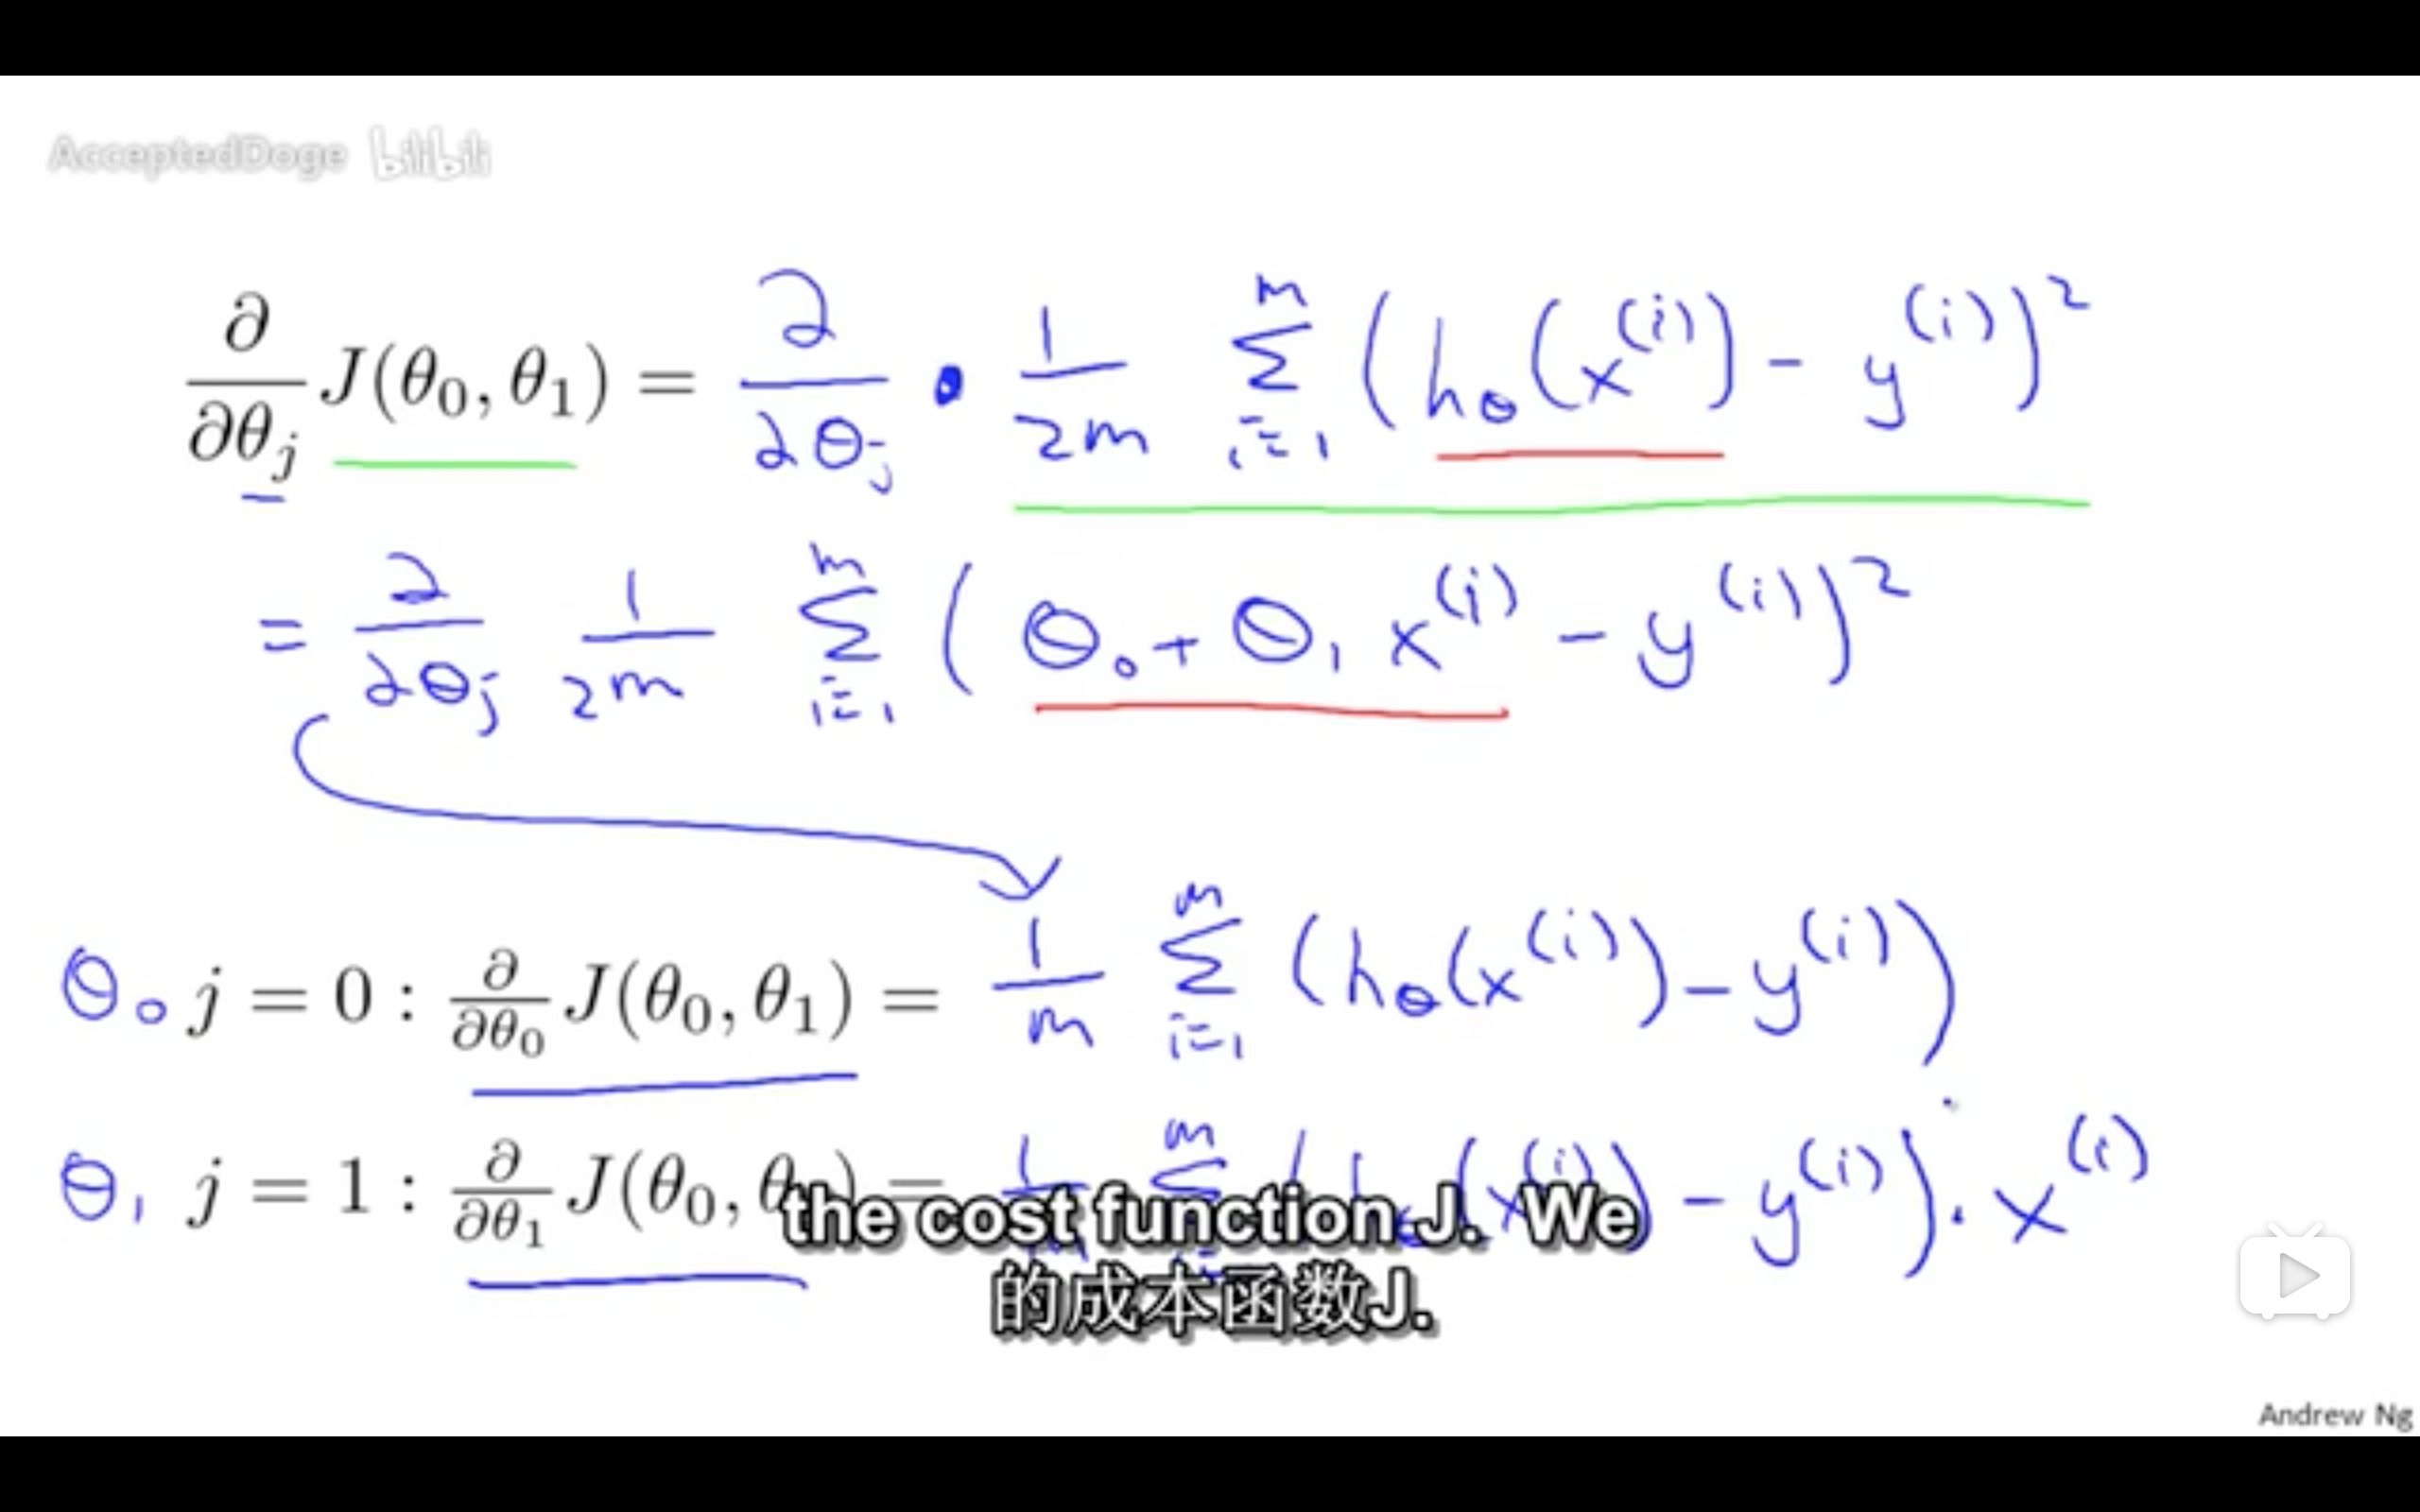 AcceptedDoge bilibili
∂/∂θ_j J(θ₀, θ₁) = ∂/∂θ_j · 1/2m Σ_{i=1}^{m} (h_θ(x^{(i)}) - y^{(i)})²
= ∂/∂θ_j 1/2m Σ_{i=1}^{m} (θ₀ + θ₁ x^{(i)} - y^{(i)})²
θ₀ j = 0 : ∂/∂θ₀ J(θ₀, θ₁) = 1/m Σ_{i=1}^{m} (h_θ(x^{(i)}) - y^{(i)})
θ₁ j = 1 : ∂/∂θ₁ J(θ₀, θ₁) = 1/m Σ_{i=1}^{m} (h_θ(x^{(i)}) - y^{(i)}) · x^{(i)}
the cost function J. We
的成本函数J.
Andrew Ng